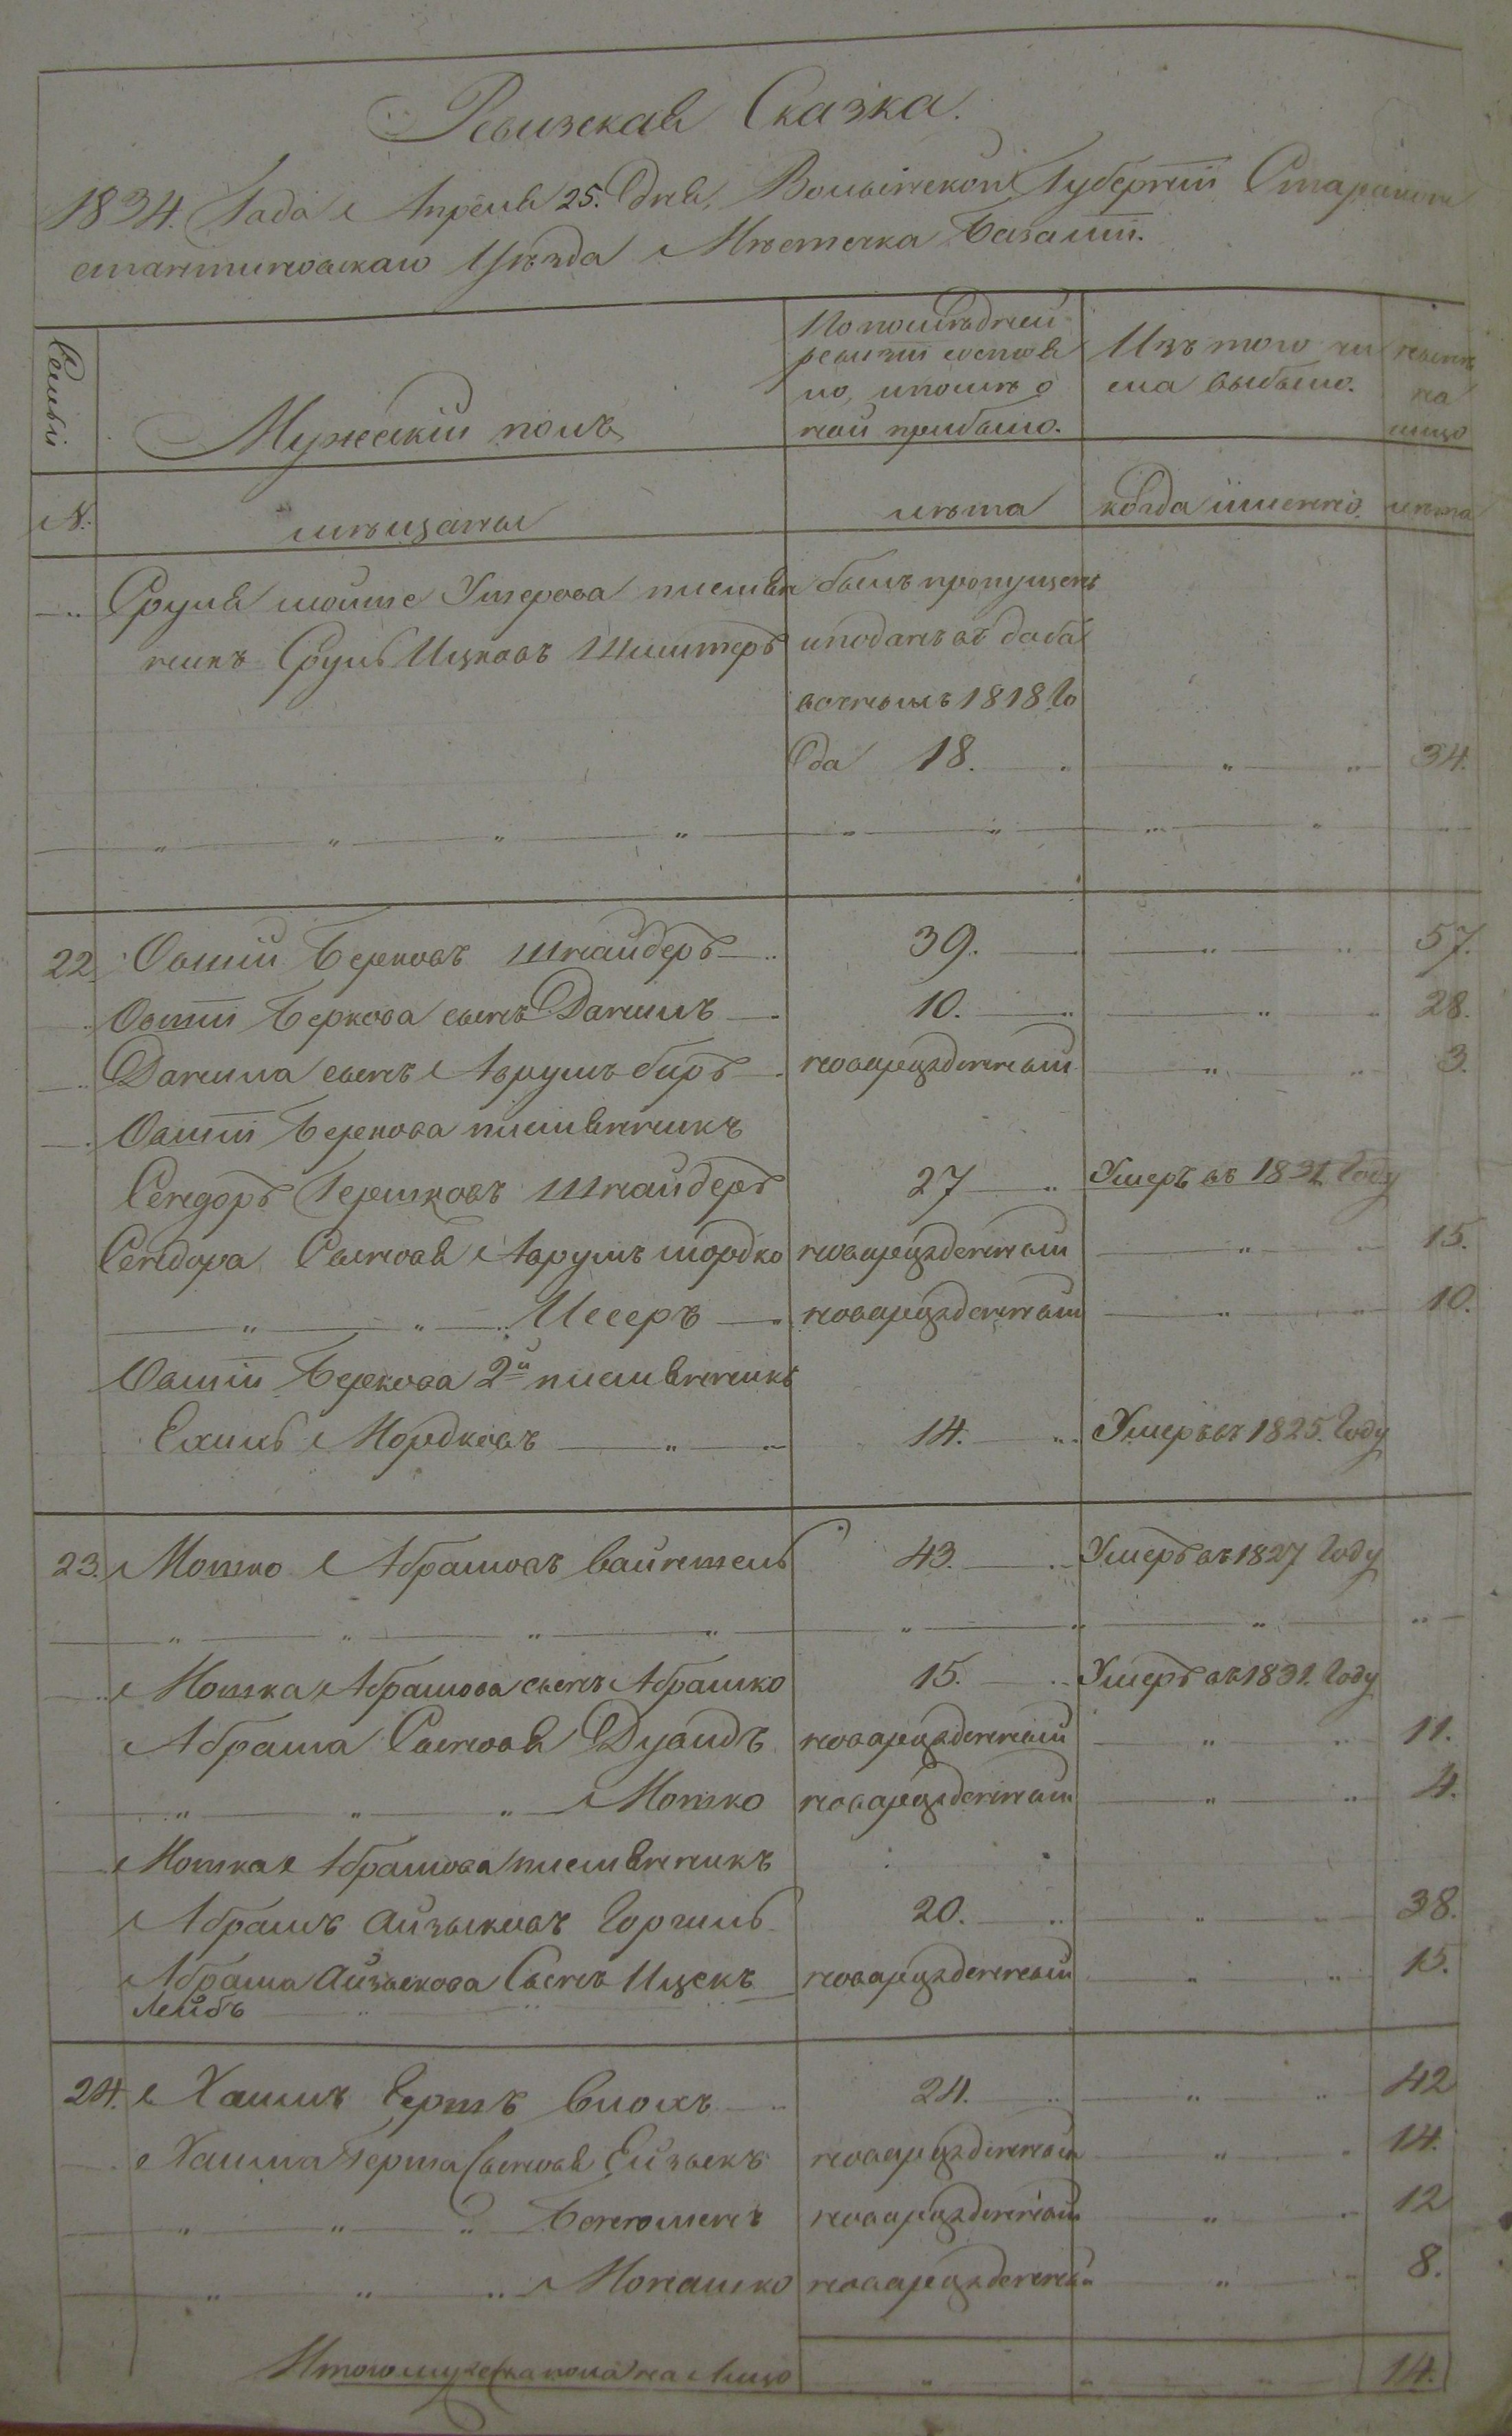 Ревизская Сказка.
1834. Года Апреля 25. Дня, Волынской Губернiи Старокон
стантиновскаго Уѣзда Мѣстечка Базалiи.
Семьи
Мужескiй полъ
По послѣдней
ревизiи состоя
ло, и послѣ о
ной прибыло.
Изъ того чи
сла выбыло.
нынѣ
на
лицо
N.
мѣщаны
лѣта
когда именно.
лѣта
Сруля Умерова племян былъ пропущенъ
никъ Сруль Ицковъ и поданъ въ доба
вочныхъ 1818 Го
да 18. 34.
22. Овшiй Берковъ Шнайдеръ 39. 57.
Овшiи Беркова сынъ Данилъ 10. 28.
Данила сынъ Аврумъ беръ новарожденный 3.
Овшiи Беркова племянникъ
Сендоръ Гершковъ Шнайдеръ 27 Умеръ въ 1831 Году
Сендора Сыновя Аврумъ мордко новарожденный 15.
Иссеръ новарожденный 10.
Овшiи Беркова 2й племянникъ
Ехиль Мордковъ 14. Умеръ въ 1825. Году
23. Мотко Абрамовъ 43. Умеръ въ 1827 Году
Мотка Абрамова сынъ Абрашко 15. Умеръ въ 1831. Году
Абраша Сыновя Дувидъ новарожденный 11.
Мотко новарожденный 4.
Мотка Абрамова племянникъ
Абрамъ Айзыковъ 20. 38.
Абрама Айзыкова Сынъ Ицекъ новарожденный 15.
Лейбъ
24. Хаимъ Герш Блохъ 24. 42
Хаима Герша Сыновя Ейзыкъ новарожденный 14.
новарожденный 12
Монашко новарожденный 8.
Итого мужеска пола на Лицо 14.